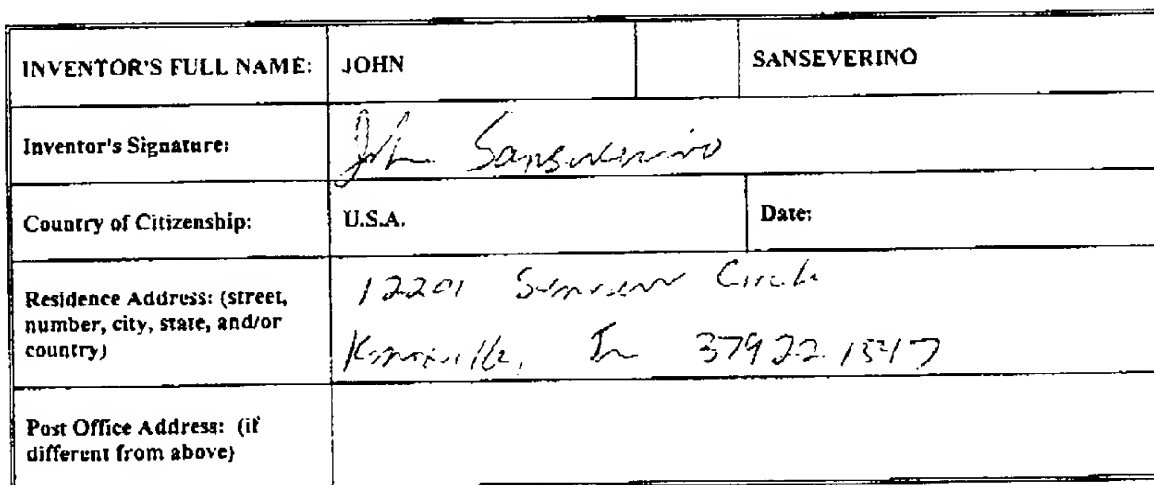 INVENTOR'S FULL NAME: JOHN SANSEVERINO
Inventor's Signature: John Sanseverino
Country of Citizenship: U.S.A. Date:
Residence Address: (street,
number, city, state, and/or
country)
12201 Circle
Knoxville, Tn 37922
Post Office Address: (if
different from above)